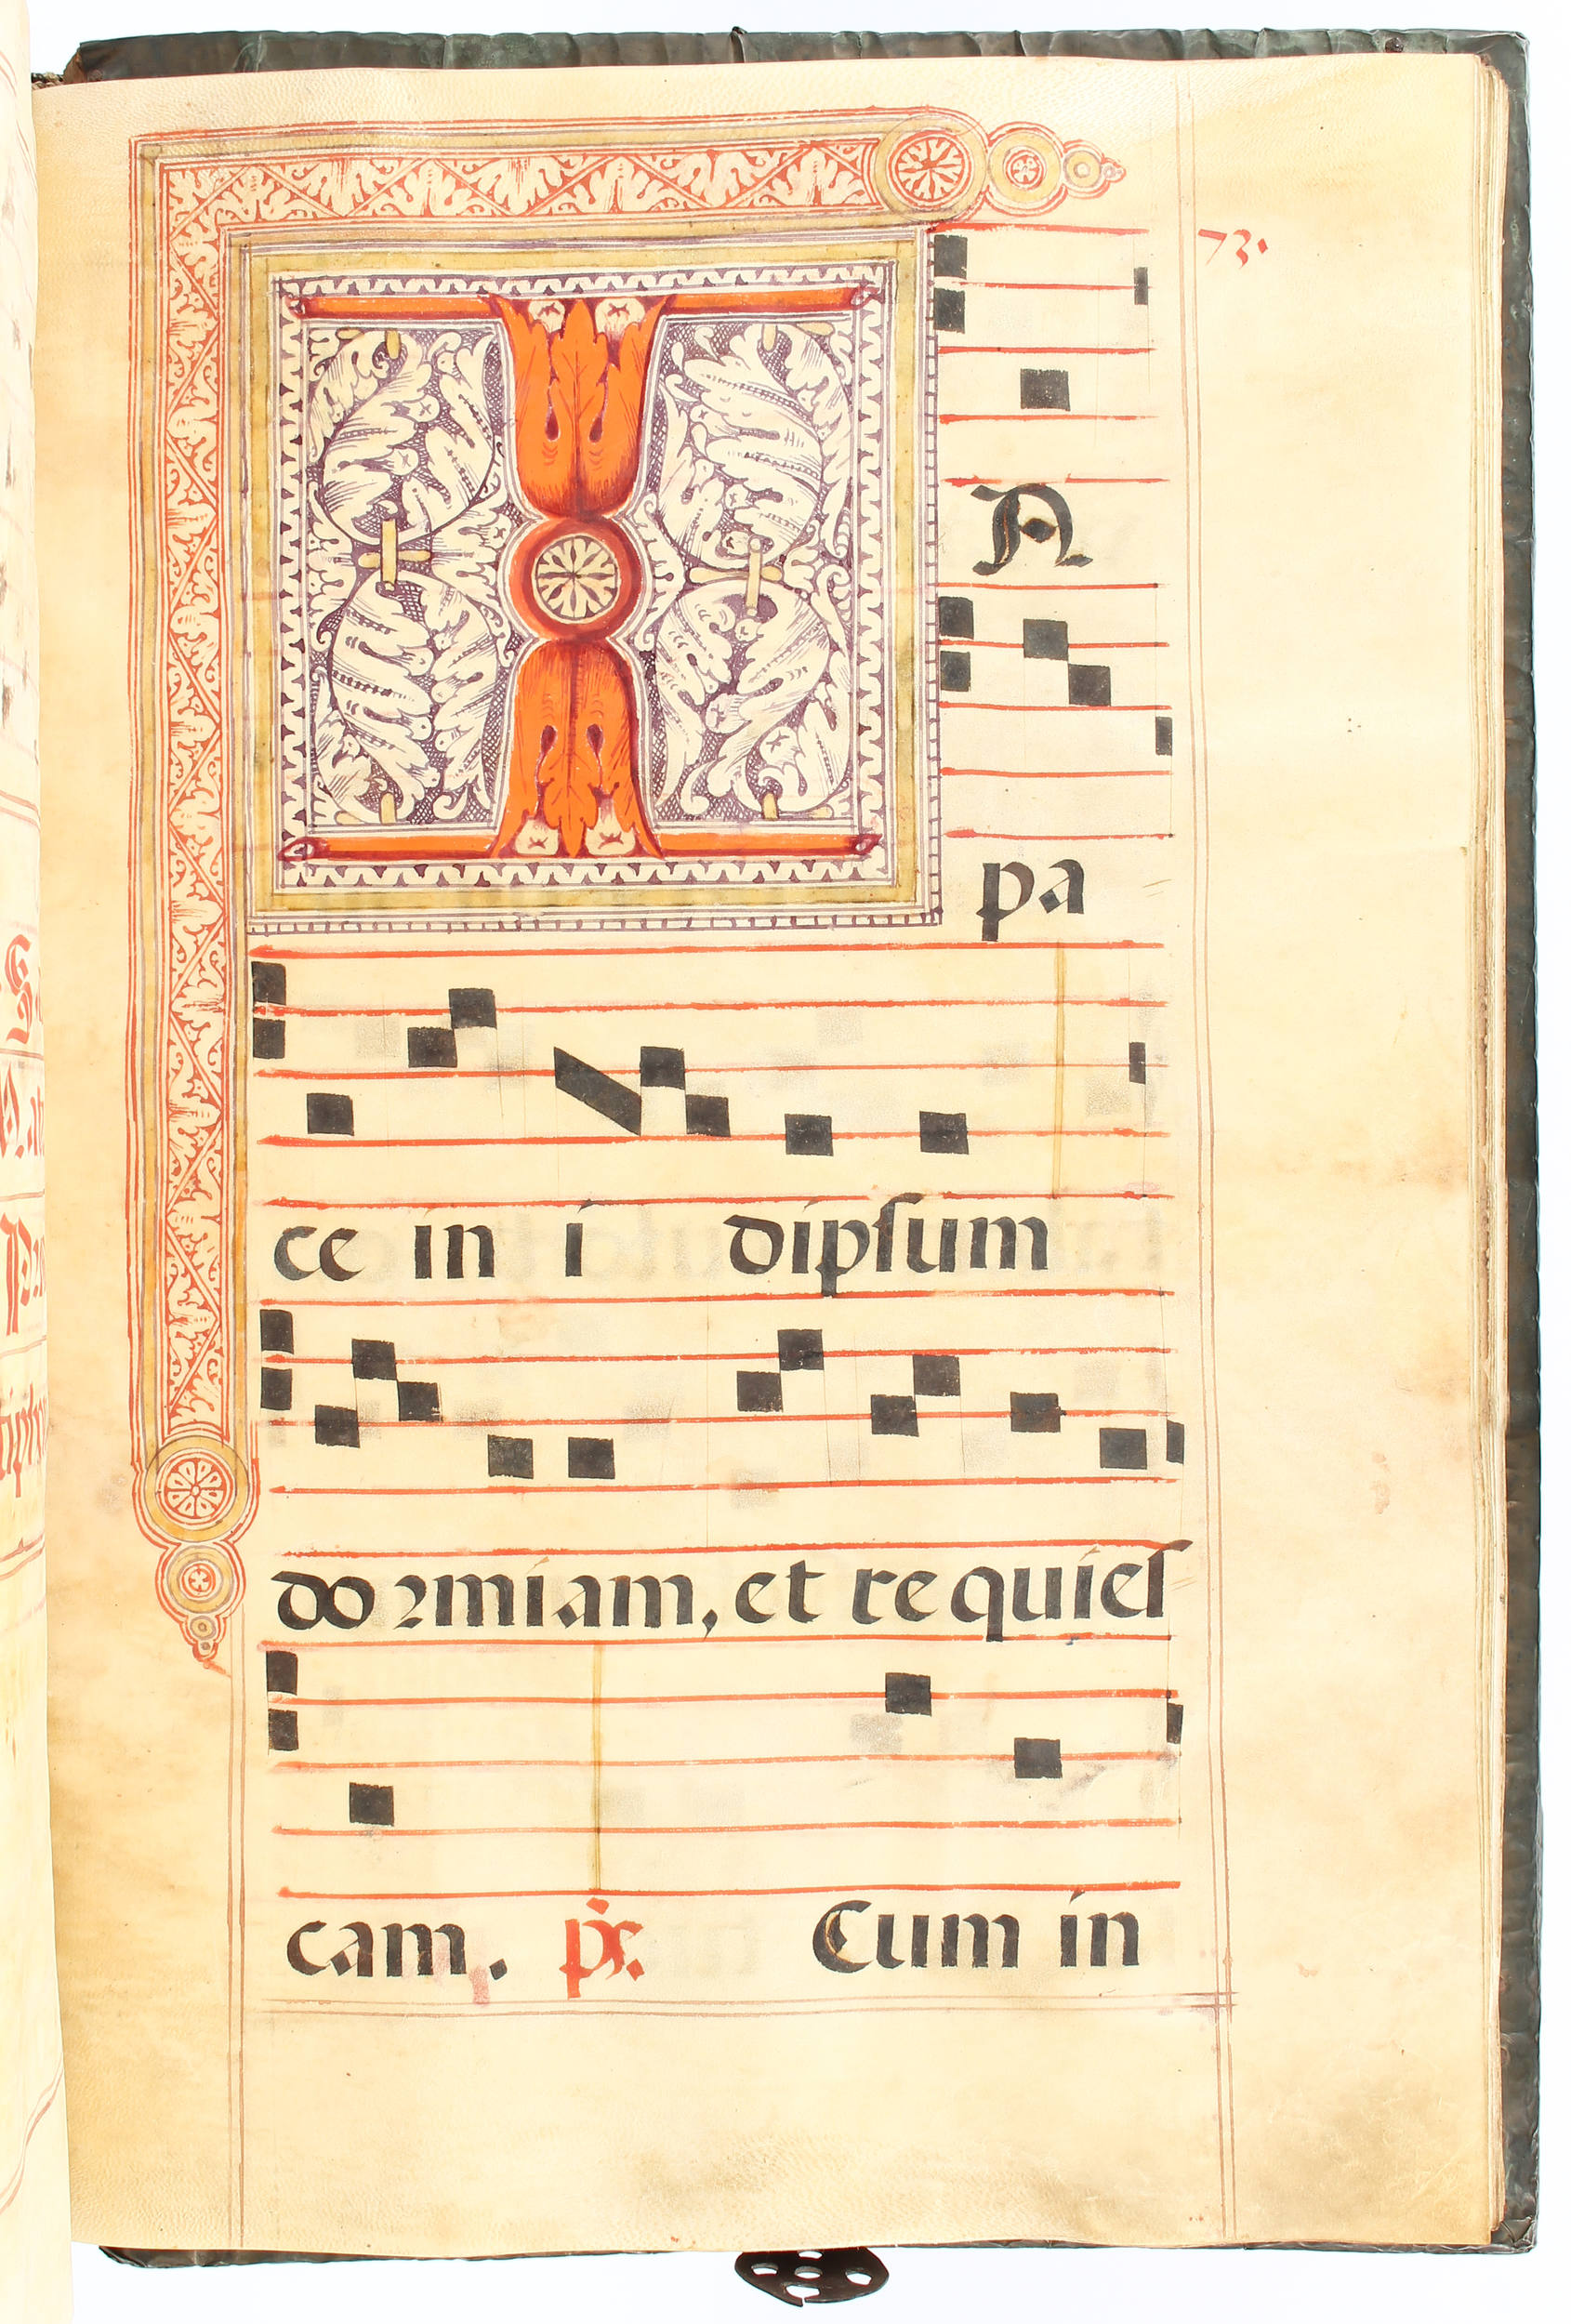 73.
IN
pa
ce in i dipſum
do ꝛmiam, et re quieſ
cam. ps. Cum in